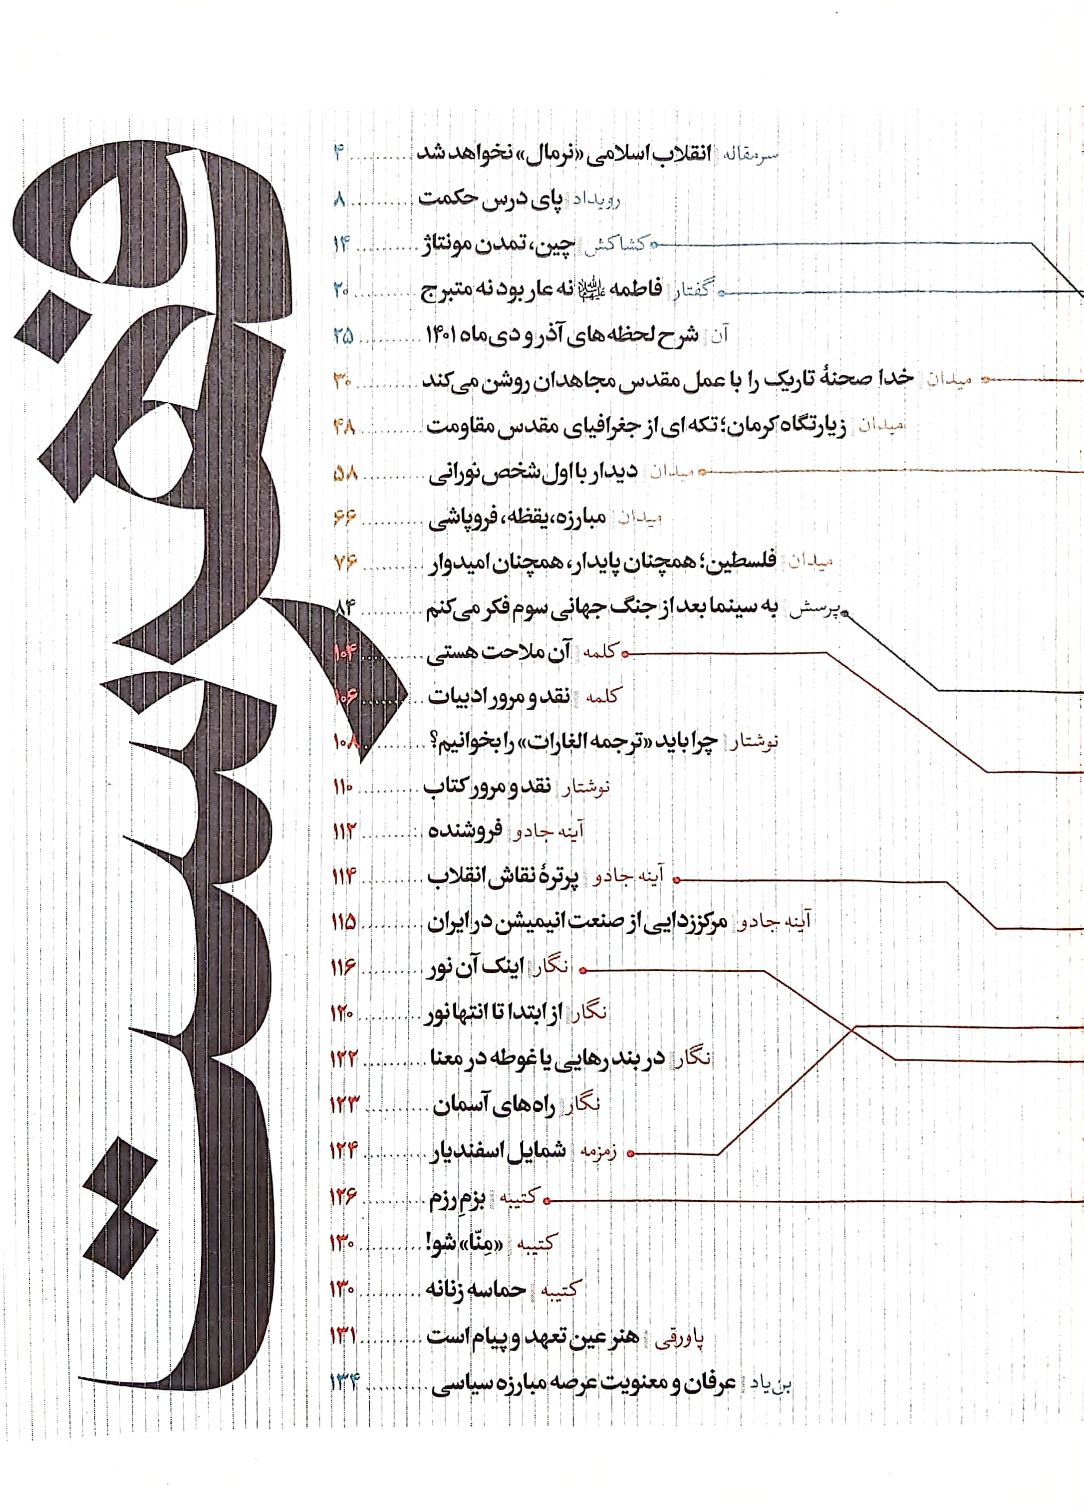 فهرست
سرمقاله | انقلاب اسلامی «نرمال» نخواهد شد .......... ۴
رویداد | پای درس حکمت .......... ۸
کشاکش | چین، تمدن مونتاژ .......... ۱۴
گفتار | فاطمه علیهاالسلام نه عار بود نه متبرج .......... ۲۰
آن | شرح لحظه‌های آذر و دی‌ماه ۱۴۰۱ .......... ۲۵
میدان | خدا صحنهٔ تاریک را با عمل مقدس مجاهدان روشن می‌کند .......... ۳۰
میدان | زیارتگاه کرمان؛ تکه‌ای از جغرافیای مقدس مقاومت .......... ۴۸
میدان | دیدار با اول شخص نورانی .......... ۵۸
میدان | مبارزه، یقظه، فروپاشی .......... ۶۶
میدان | فلسطین؛ همچنان پایدار، همچنان امیدوار .......... ۷۶
پرسش | به سینما بعد از جنگ جهانی سوم فکر می‌کنم .......... ۸۴
کلمه | آن ملاحت هستی .......... ۱۰۴
کلمه | نقد و مرور ادبیات .......... ۱۰۶
نوشتار | چرا باید «ترجمه الغارات» را بخوانیم؟ .......... ۱۰۸
نوشتار | نقد و مرور کتاب .......... ۱۱۰
آینه جادو | فروشنده .......... ۱۱۲
آینه جادو | پرترهٔ نقاش انقلاب .......... ۱۱۴
آینه جادو | مرکززدایی از صنعت انیمیشن در ایران .......... ۱۱۵
نگار | اینک آن نور .......... ۱۱۶
نگار | از ابتدا تا انتها نور .......... ۱۲۰
نگار | در بند رهایی یا غوطه در معنا .......... ۱۲۲
نگار | راه‌های آسمان .......... ۱۲۳
زمزمه | شمایل اسفندیار .......... ۱۲۴
کتیبه | بزمِ رزم .......... ۱۲۶
کتیبه | «مِنّا» شو! .......... ۱۳۰
کتیبه | حماسه زنانه .......... ۱۳۰
پاورقی | هنر عین تعهد و پیام است .......... ۱۳۱
بن‌یاد | عرفان و معنویت عرصه مبارزه سیاسی .......... ۱۳۴